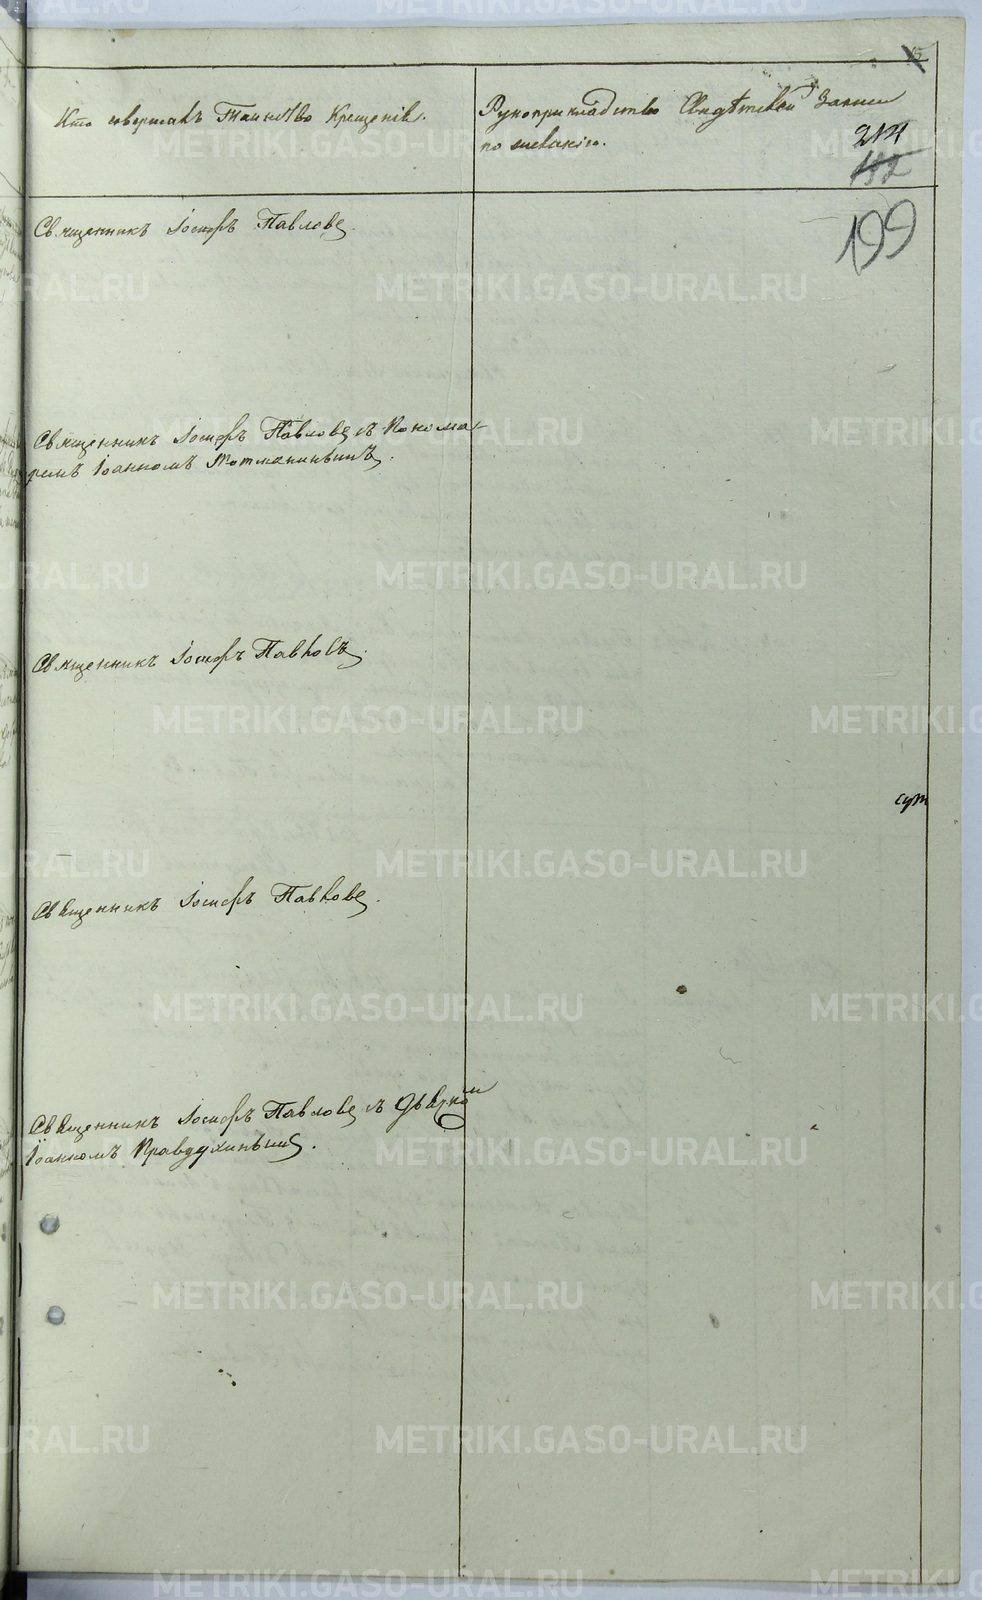 15
Кто совершалъ Таинство Крещенія.
Рукоприкладство Свидѣтелей Записи
по желанію.
214
182
199
Священникъ Іосифъ Павловъ.
Священникъ Іосифъ Павловъ съ Понома-
ремъ Іоанномъ
Священникъ Іосифъ Павловъ.
сут
Священникъ Іосифъ Павловъ.
Священникъ Іосифъ Павловъ съ Дьячкомъ
Іоанномъ Правдухинымъ.
METRIKI.GASO-URAL.RU